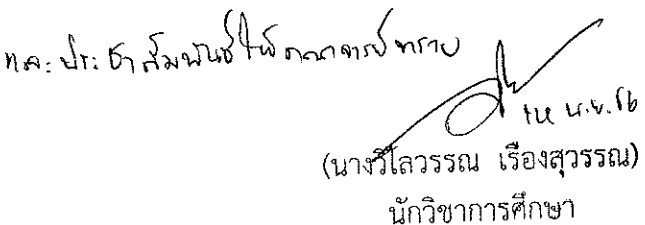 และประชาสัมพันธ์ให้คณาจารย์ทราบ
เม.ย. 56
(นางวิไลวรรณ เรืองสุวรรณ)
นักวิชาการศึกษา